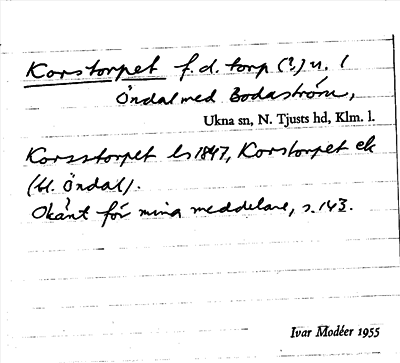 Korstorpet f.d. torp (?) u. 1
Öndal med Bodaström,
Ukna sn, N. Tjusts hd, Klm. l.
Korsstorpet ls 1847, Korstorpet ek
(bl. Öndal).
Okänt för mina meddelare, s. 143.
Ivar Modéer 1955